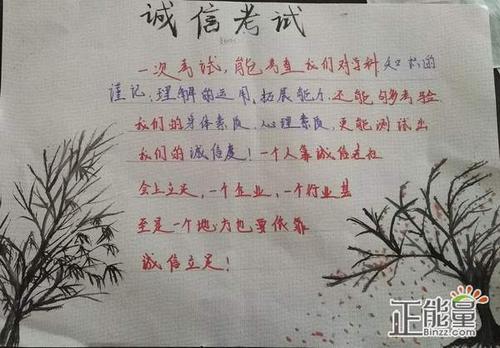 诚信考试
一次考试，能考查我们对学科知识的
谨记，理解的运用，拓展能力，还能够考验
我们的身体素质，心理素质，更能测试出
我们的诚信度！一个人靠诚信在社
会上立足，一个企业，一个行业甚
至是一个地方也要依靠
诚信立足！
正能量
Binzz.com